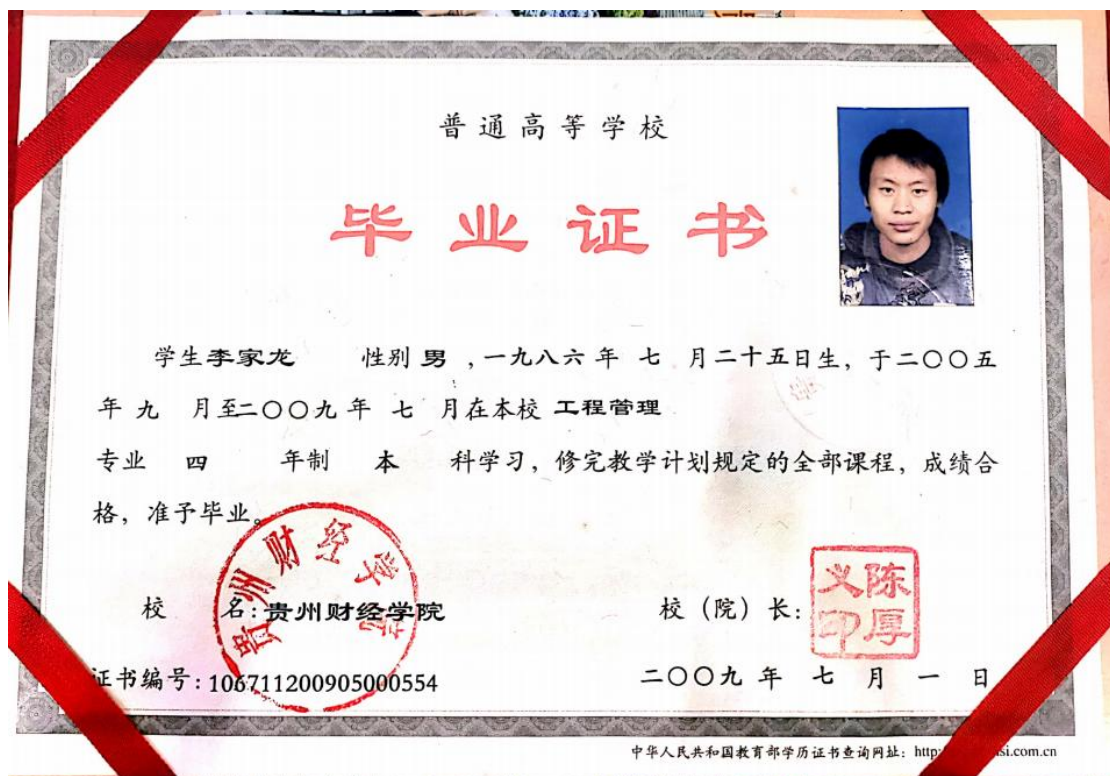 普通高等学校
毕业证书
学生李家龙 性别 男 ,一九八六 年 七 月二十五日生，于二〇〇五
年 九 月至二〇〇九 年 七 月在本校 工程管理
专业 四 年制 本 科学习，修完教学计划规定的全部课程，成绩合
格，准予毕业。
贵州财经学院
校 名: 贵州财经学院 校（院）长:
陈厚义印
证书编号: 106711200905000554 二〇〇九 年 七 月 一 日
中华人民共和国教育部学历证书查询网址: http si.com.cn